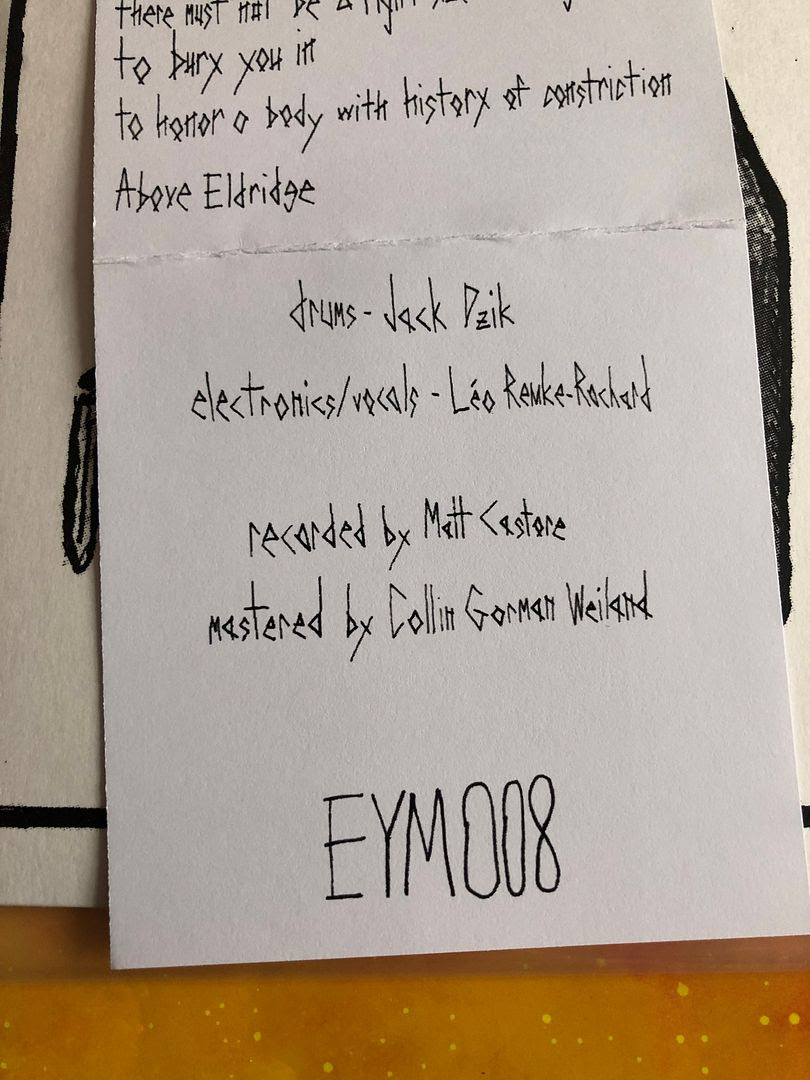 there must not be a right
to bury you in
to honor a body with history of constriction
Above Eldridge
drums - Jack Dzik
electronics/vocals - Léo Remke-Rochard
recorded by Matt Castore
mastered by Collin Gorman Weiland
EYM008